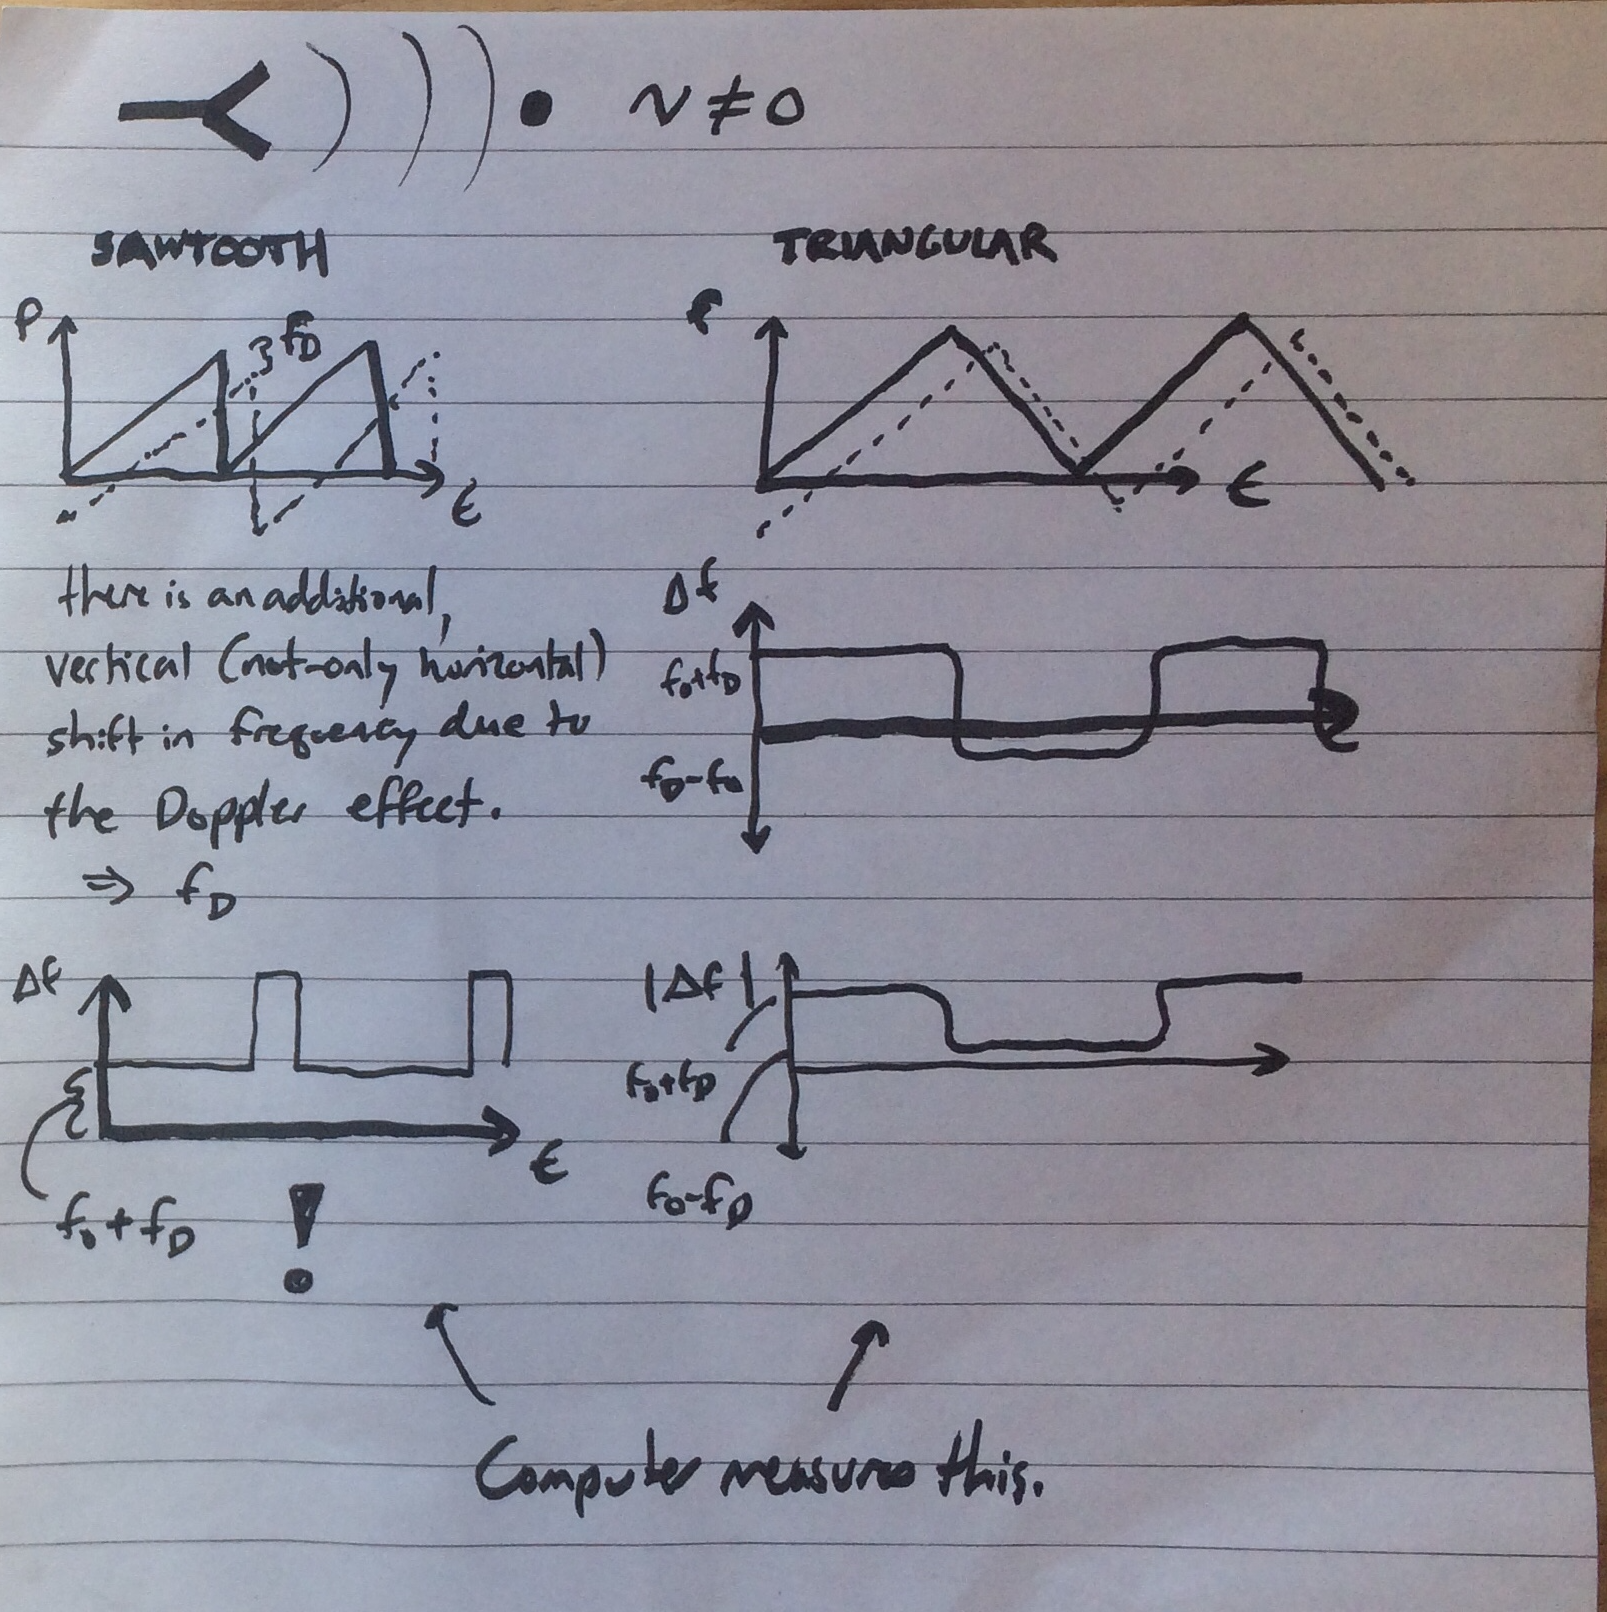 v ≠ 0
SAWTOOTH
f
f_D
t
there is an additional,
vertical (not-only horizontal)
shift in frequency due to
the Doppler effect.
⇒ f_D
Δf
t
f₀+f_D
!
TRIANGULAR
f
t
Δf
f₀+f_D
f_D-f₀
t
|Δf|
f₀+f_D
f₀-f_D
Computer measures this.